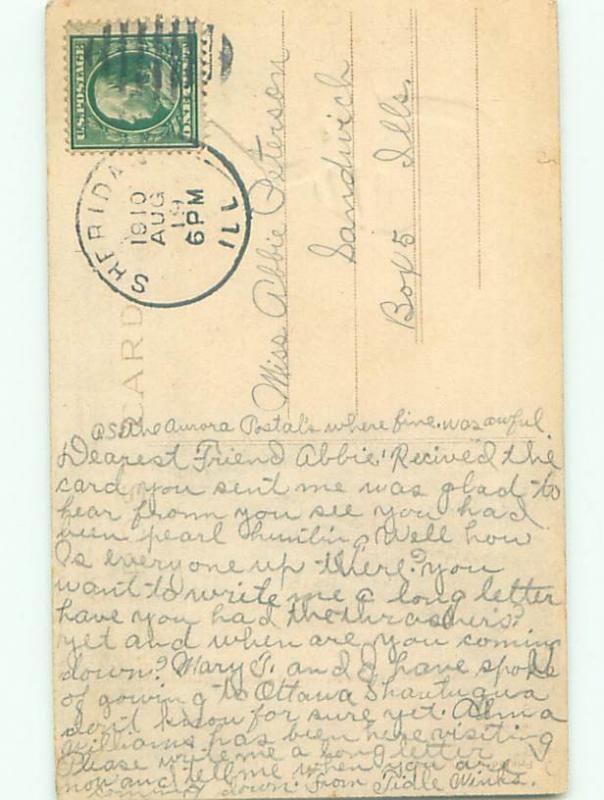 U.S. POSTAGE
ONE CENT
SHERIDAN
1910
AUG
19
6 PM
ILL
CARD
Miss Abbie Peterson
Sandwich
Box 5 Ills.
P.S. the Aurora Postals where fine. was awful
Dearest Friend Abbie! Recived the
card you sent me was glad to
hear fromm you see you had
been pearl huntin. Well how
is every one up there? you
want to write me a long letter
have you had the thrashers?
yet and when are you coming
down? Mary T. and I have spoke
of gowing to Ottawa Shautuqua
don't know for sure yet. Alma
Williams has been here visiting
Please write me a long letter
now and tell me when you are
coming down. From Tidle Winks.